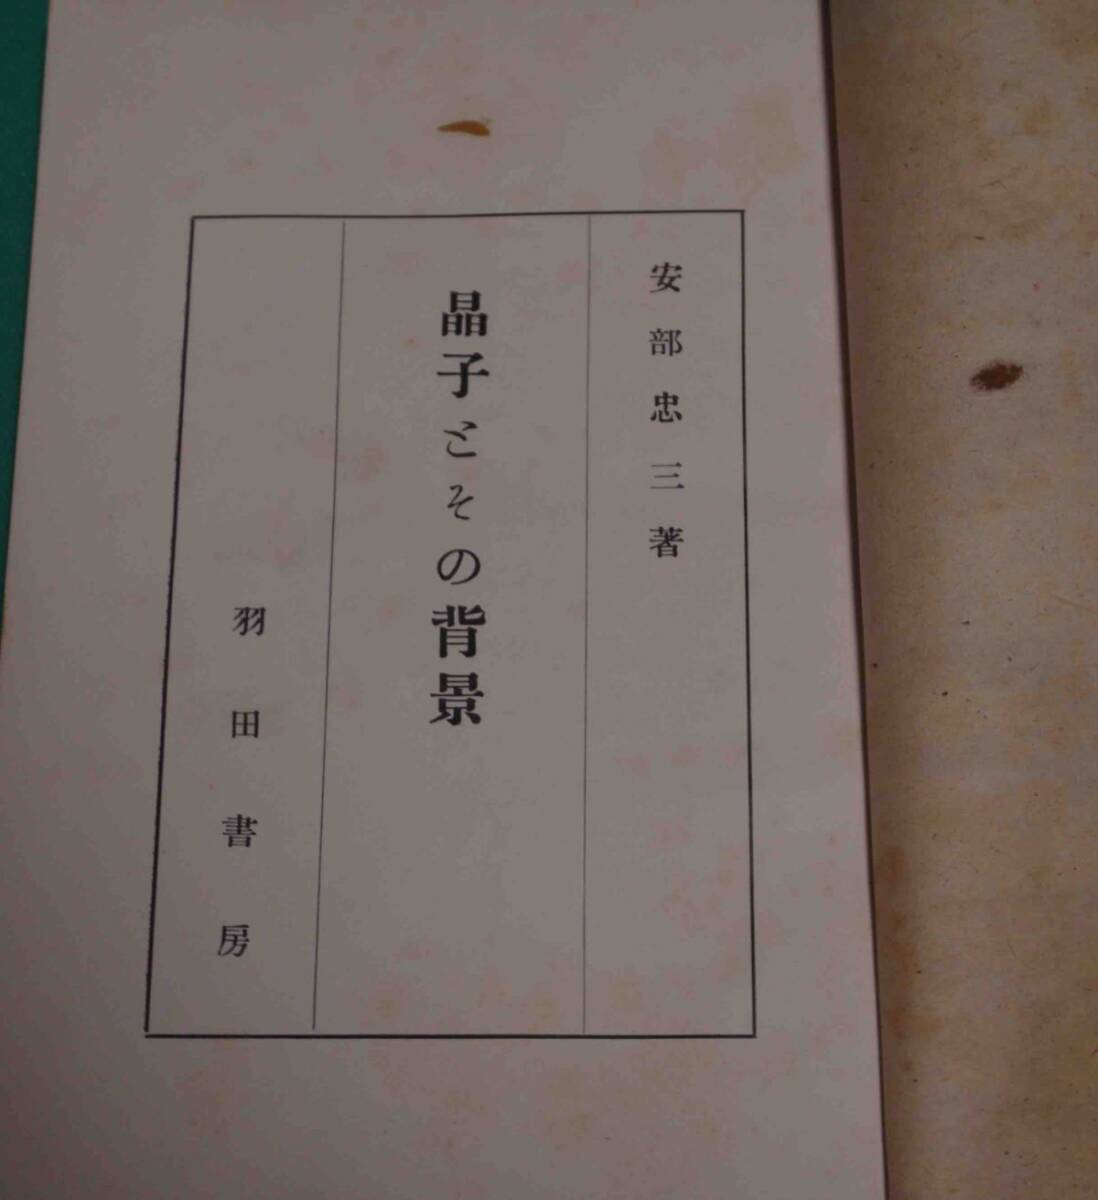 安部忠三著
晶子とその背景
羽田書房